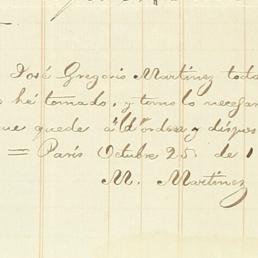 José Gregorio Martínez toda
hé tomado, y tomo lo necesar
que quede á la orden y dispos
= París Octubre 25 de 1
M. Martínez